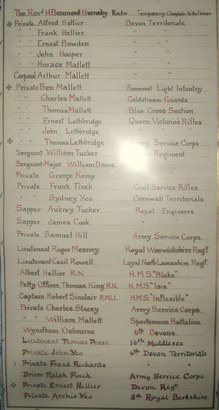 The Revd H Beaumont Burnaby Rector Temporary Chaplain to the Forces
Private Alfred Hellier Devon Territorials
" Frank Hellier " "
" Ernest Bowden " "
" John Hooper " "
" Horace Mallett " "
Corporal Arthur Mallett " "
Private Ben Mallett Somerset Light Infantry
" Charles Mallett Coldstream Guards
" Thomas Mallett Blue Cross Section
" Ernest Lethbridge Queen Victoria's Rifles
" John Lethbridge " "
" Thomas Lethbridge Army Service Corps
Sergeant William Tucker Regiment
Sergeant-Major William Dawe
Private George Kemp
Private Frank Finch Civil Service Rifles
" Sydney Yeo Cornwall Territorials
Sapper Aubrey Tucker Royal Engineers
Sapper James Cook " "
Private Samuel Hill Army Service Corps
Lieutenant Roger Mesney Royal Warwickshire Regt
Lieutenant Cecil Rowell Loyal North Lancashire Regt
Albert Hellier R.N. H.M.S. "Blake"
Petty Officer, Thomas King R.N. H.M.S. "Isis"
Captain Robert Sinclair R.M.L.I. H.M.S. "Inflexible"
Private Charles Stacey Army Service Corps
" William Mallett Sportsmans Battalion
Wyndham Osbourne 6th Devons
Lieutenant Thomas 16th Middlesex
Private John Yeo 6th Devon Territorials
Private Frank Rickards " "
Driver Ralph Finch Army Service Corps
Private Ernest Hellier Devon Regt
Private Archie Yeo 8th Royal Berkshire